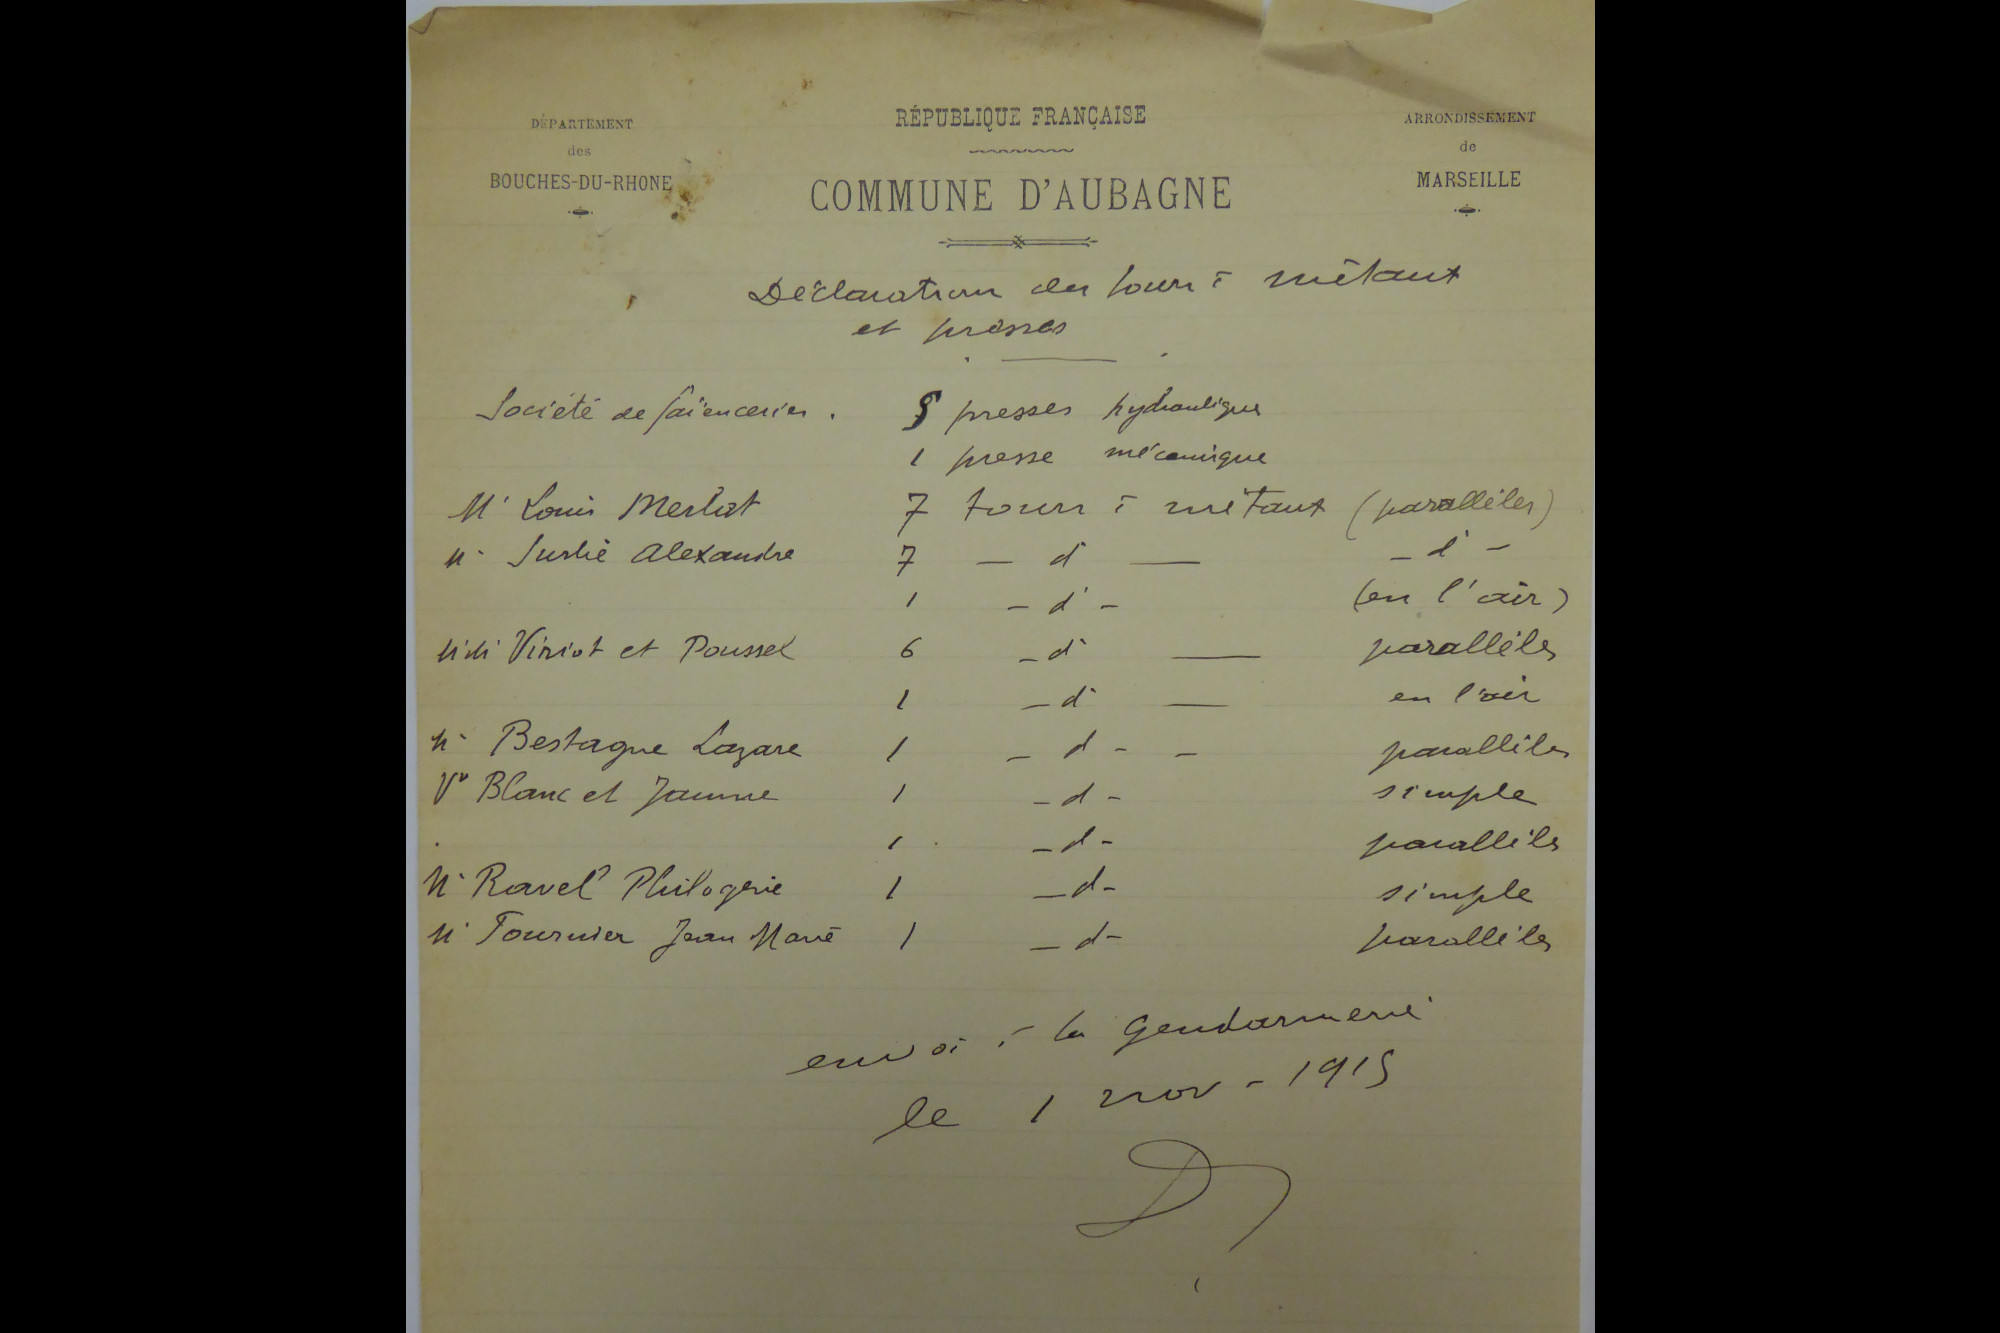 DÉPARTEMENT
des
BOUCHES-DU-RHONE
RÉPUBLIQUE FRANÇAISE
COMMUNE D'AUBAGNE
ARRONDISSEMENT
de
MARSEILLE
Déclaration des tours à métaux
et presses
Société de faïenceries. presses hydrauliques
1 presse mécanique
Mr Louis Merlat 7 tours à métaux (parallèles)
Mr Alexandre 7 — d° — — d° —
1 — d° — (en l'air)
MM Viriot et Poussel 6 — d° — parallèles
1 — d° — en l'air
Mr Bestagne Lazare 1 — d° — — parallèles
Vve Blanc et Jaume 1 — d — simple
1 — d — parallèles
Mr Ravel Philogène 1 — d — simple
Mr Fournier Jean Marie 1 — d — parallèles
envoi à la Gendarmerie
le 1 nov - 1915